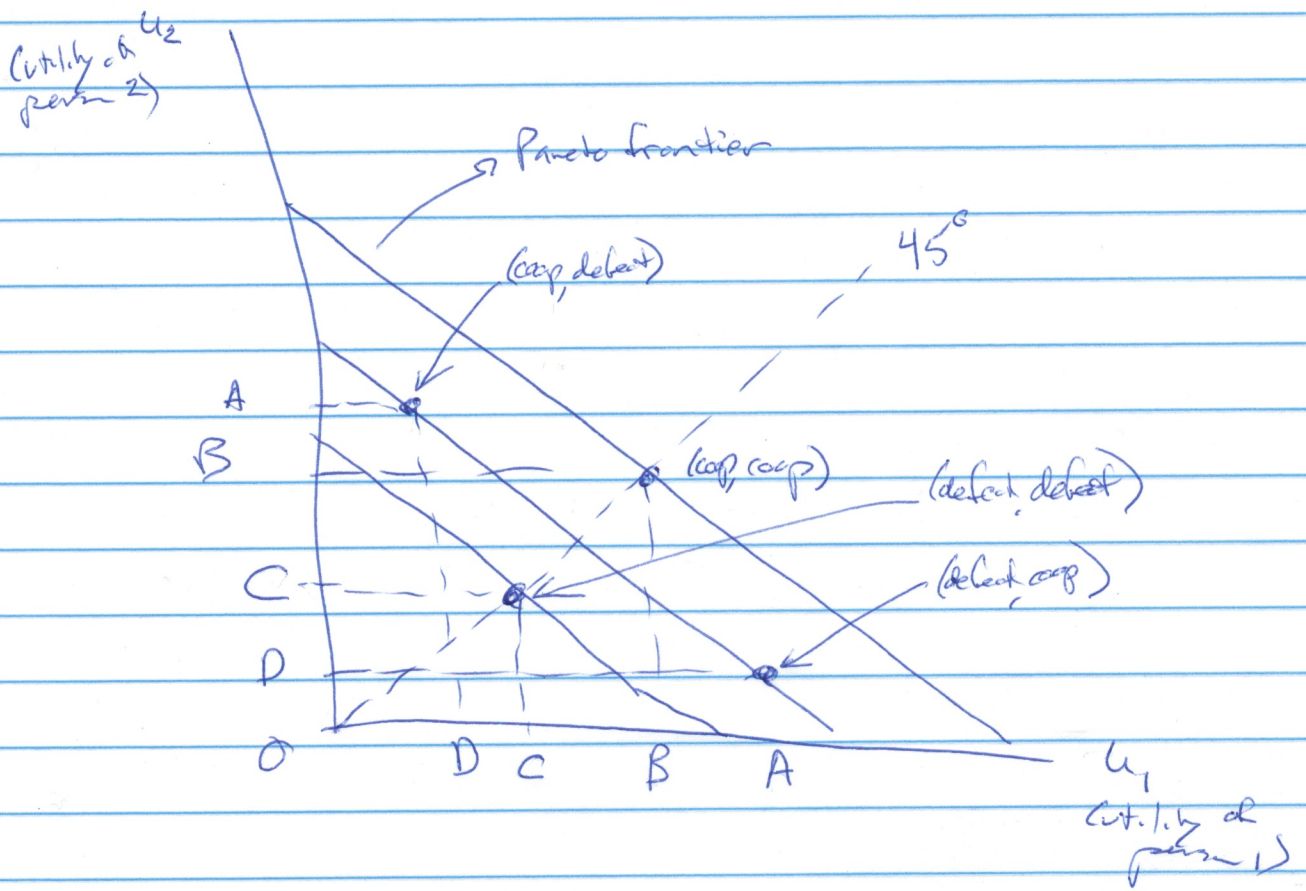 u₂
(utility of
person 2)
Pareto frontier
45°
(coop, defect)
A
B
(coop, coop)
(defect, defect)
C
(defect, coop)
D
O
D
C
B
A
u₁
(utility of
person 1)